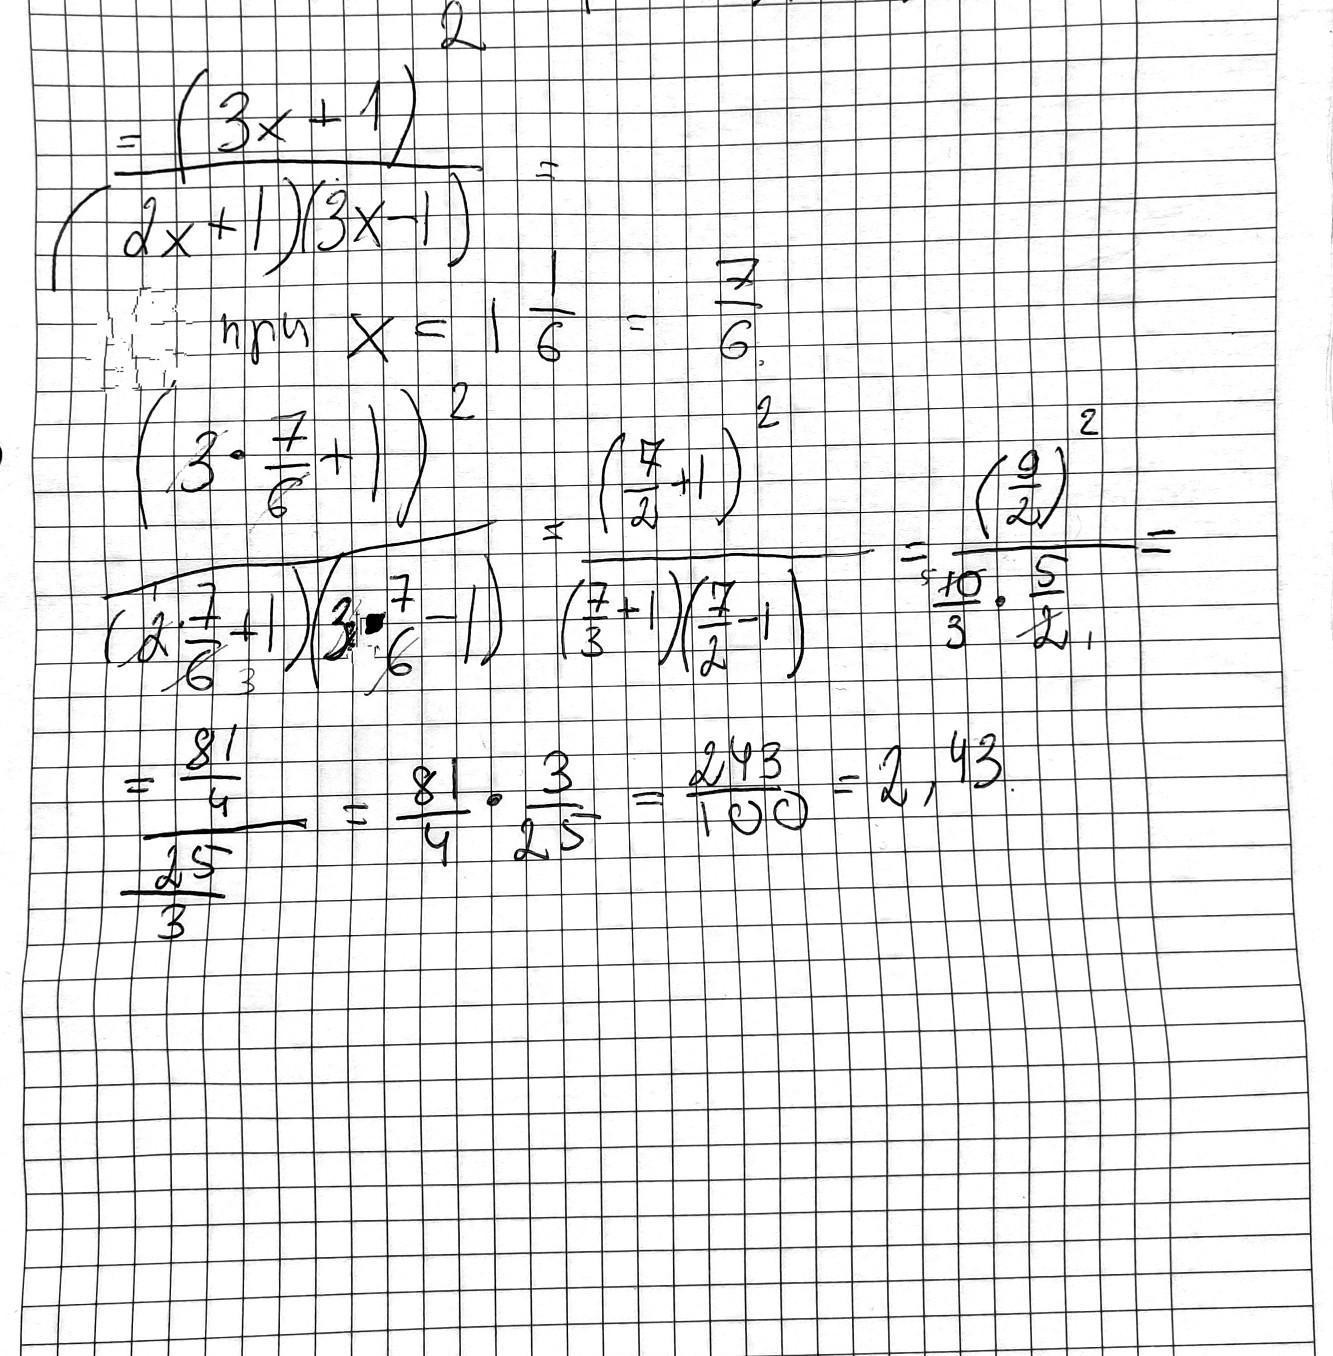 = (3x+1)² / ((2x+1)(3x-1)) =
при x = 1 1/6 = 7/6
(3·7/6+1)² / ((2·7/6+1)(3·7/6-1)) = (7/2+1)² / ((7/3+1)(7/2-1)) = (9/2)² / (10/3·5/2) =
= 81/4 / 25/3 = 81/4 · 3/25 = 243/100 = 2,43